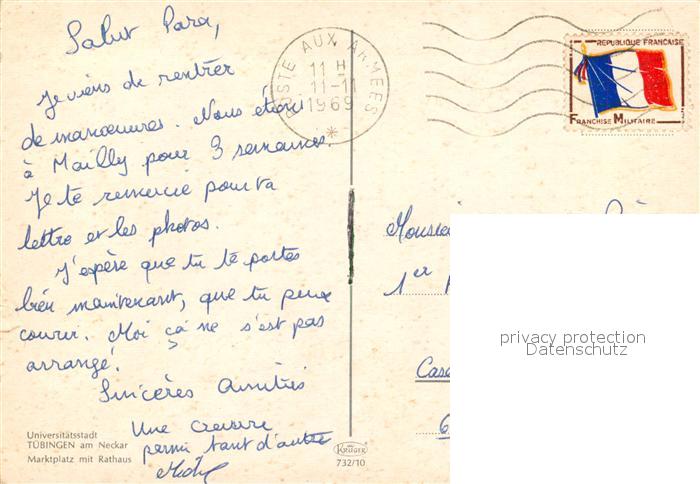 Salut Para,
Je viens de rentrer
de manoeuvres. Nous étions
à Mailly pour 3 semaines.
Je te remercie pour ta
lettre et les photos.
J'espère que tu te portes
bien maintenant, que tu peux
courir. Moi ça ne s'est pas
arrangé.
Sincères Amitiés
Une
parmi tant d'autre
POSTE AUX ARMEES
11 H
11-11
1969
REPUBLIQUE FRANÇAISE
FRANCHISE MILITAIRE
Monsieu
1er
Cas
6
privacy protection
Datenschutz
Universitätsstadt
TÜBINGEN am Neckar
Marktplatz mit Rathaus
KRÜGER
732/10